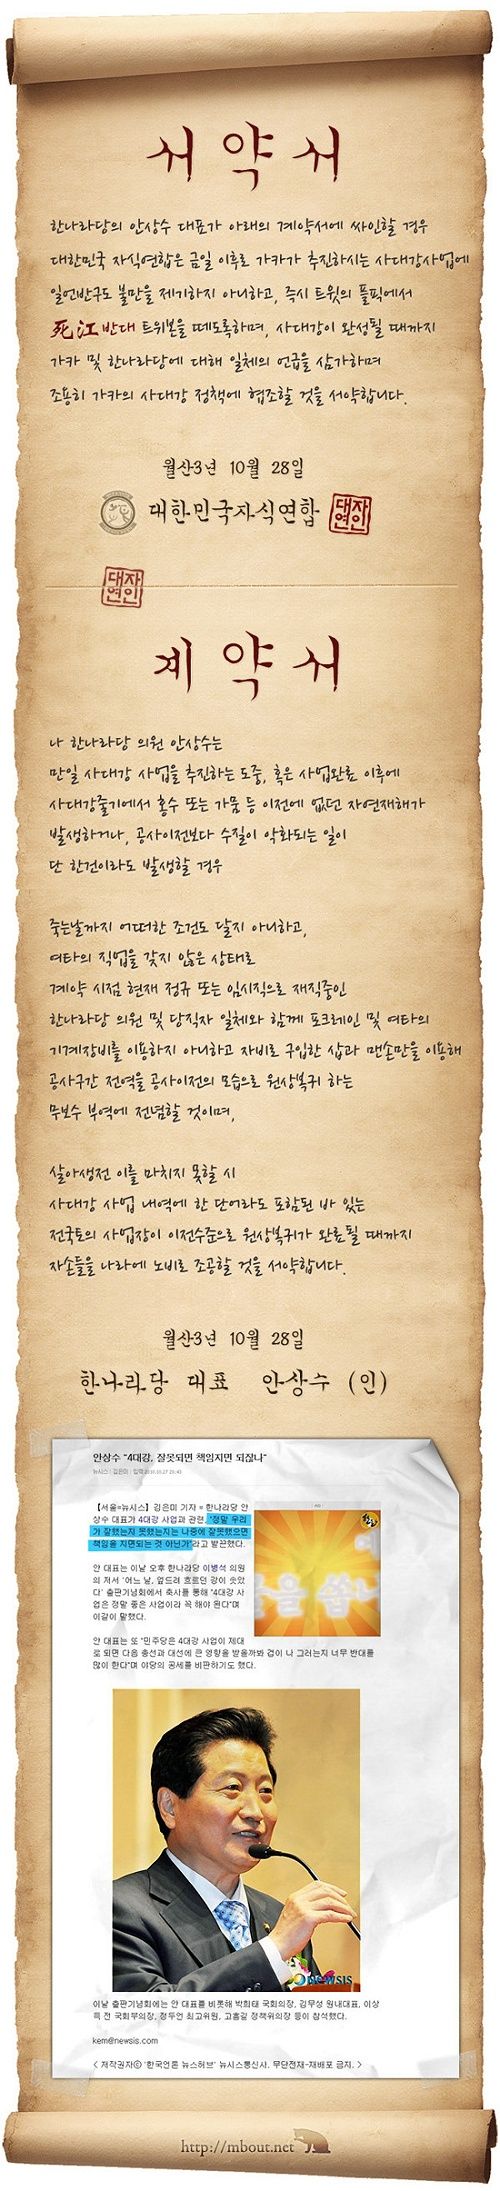 서약서
한나라당의 안상수 대표가 아래의 계약서에 싸인할 경우
대한민국 자식연합은 금일 이후로 가카가 추진하시는 사대강사업에
일언반구도 불만을 제기하지 아니하고, 즉시 트윗의 플픽에서
死江반대 트위본을 떼도록하며, 사대강이 완성될 때까지
가카 및 한나라당에 대해 일체의 언급을 삼가하며
조용히 가카의 사대강 정책에 협조할 것을 서약합니다.
월산3년 10월 28일
대한민국자식연합
대자
연인
대자
연인
계약서
나 한나라당 의원 안상수는
만일 사대강 사업을 추진하는 도중, 혹은 사업완료 이후에
사대강줄기에서 홍수 또는 가뭄 등 이전에 없던 자연재해가
발생하거나, 공사이전보다 수질이 악화되는 일이
단 한건이라도 발생할 경우
죽는날까지 어떠한 조건도 달지 아니하고,
여타의 직업을 갖지 않은 상태로
계약 시점 현재 정규 또는 임시직으로 재직중인
한나라당 의원 및 당직자 일체와 함께 포크레인 및 여타의
기계장비를 이용하지 아니하고 자비로 구입한 삽과 맨손만을 이용해
공사구간 전역을 공사이전의 모습으로 원상복귀 하는
무보수 부역에 전념할 것이며,
살아생전 이를 마치지 못할 시
사대강 사업 내역에 한 단어라도 포함된 바 있는
전국토의 사업장이 이전수준으로 원상복귀가 완료될 때까지
자손들을 나라에 노비로 조공할 것을 서약합니다.
월산3년 10월 28일
한나라당 대표 안상수 (인)
안상수 "4대강, 잘못되면 책임지면 되잖나"
뉴시스 | 김은미 | 입력 2010.10.27 20:43
【서울=뉴시스】김은미 기자 = 한나라당 안
상수 대표가 4대강 사업과 관련, "정말 우리
가 잘했는지 못했는지는 나중에 잘못했으면
책임을 지면되는 것 아닌가"라고 발끈했다.
안 대표는 이날 오후 한나라당 이병석 의원
의 저서 '어느 날, 엎드려 흐르던 강이 솟았
다' 출판기념회에서 축사를 통해 "4대강 사
업은 정말 좋은 사업이라 꼭 해야 된다"며
이같이 말했다.
안 대표는 또 "민주당은 4대강 사업이 제대
로 되면 다음 총선과 대선에 큰 영향을 받을까봐 겁이 나 그러는지 너무 반대를
많이 한다"며 야당의 공세를 비판하기도 했다.
NEWSIS
이날 출판기념회에는 안 대표를 비롯해 박희태 국회의장, 김무성 원내대표, 이상
득 전 국회부의장, 정두언 최고위원, 고흥길 정책위의장 등이 참석했다.
kem@newsis.com
< 저작권자ⓒ '한국언론 뉴스허브' 뉴시스통신사. 무단전재-재배포 금지. >
http://mbout.net